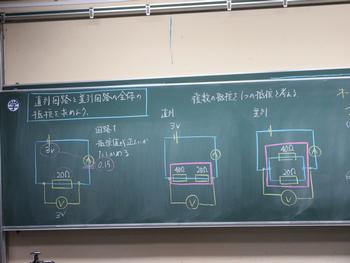 学
直列回路と並列回路の全体の
抵抗を求めよう。
複数の抵抗を1つの抵抗と考える
回路1
抵抗値が正しいか
たしかめる
0.15
3V
A
20Ω
V
3V
直列
3V
A
40Ω 20Ω
V
並列
A
40Ω
20Ω
V
オー